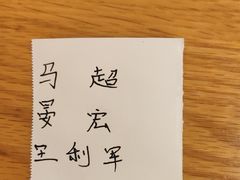 马超
晏宏
王利军